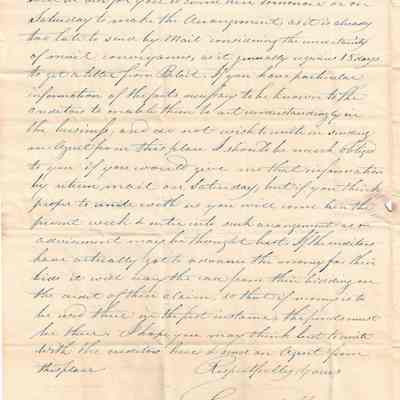 Saturday to make the arrangement as it is already
too late to send by Mail considering the uncertainty
of mail conveyances, as it generally requires 15 days
to get a letter from Detroit. If you have particular
information of the facts necessary to be known to the
creditors to enable them to act understandingly in
the business, and do not wish to unite in sending
an Agent from this place I should be much obliged
to you if you would give me that information
by return mail on Saturday, but if you think
proper to unite with us you will come here the
present week & enter into such arrangement as on
advisement may be thought best. If the creditors
have actually got to advance the money for their
bids it will vary the case from their bidding on
the credit of their claim, so that if money is to
be used there in the first instance, the funds must
be there. I hope you may think best to unite
with the creditors here & send an Agent from
this place Respectfully Yours